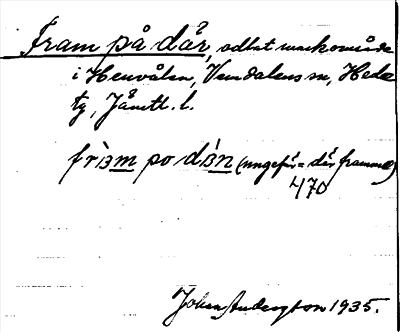 Fram på dår, odlat markområde
i Henvålen, Vemdalens sn, Hede
tg, Jämtl. l.
friɜm po dɜn (ungefär = där framme)
470
Johan Anderszon 1935.